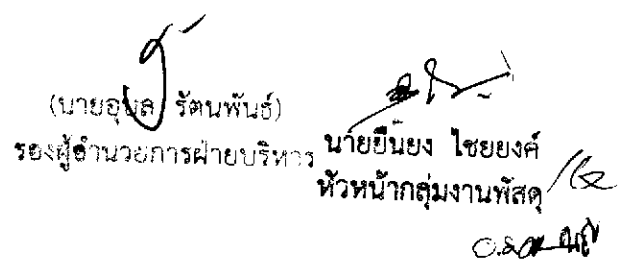 (นายอุบล รัตนพันธ์)
รองผู้อำนวยการฝ่ายบริหาร
นายยืนยง ไชยยงค์
หัวหน้ากลุ่มงานพัสดุ